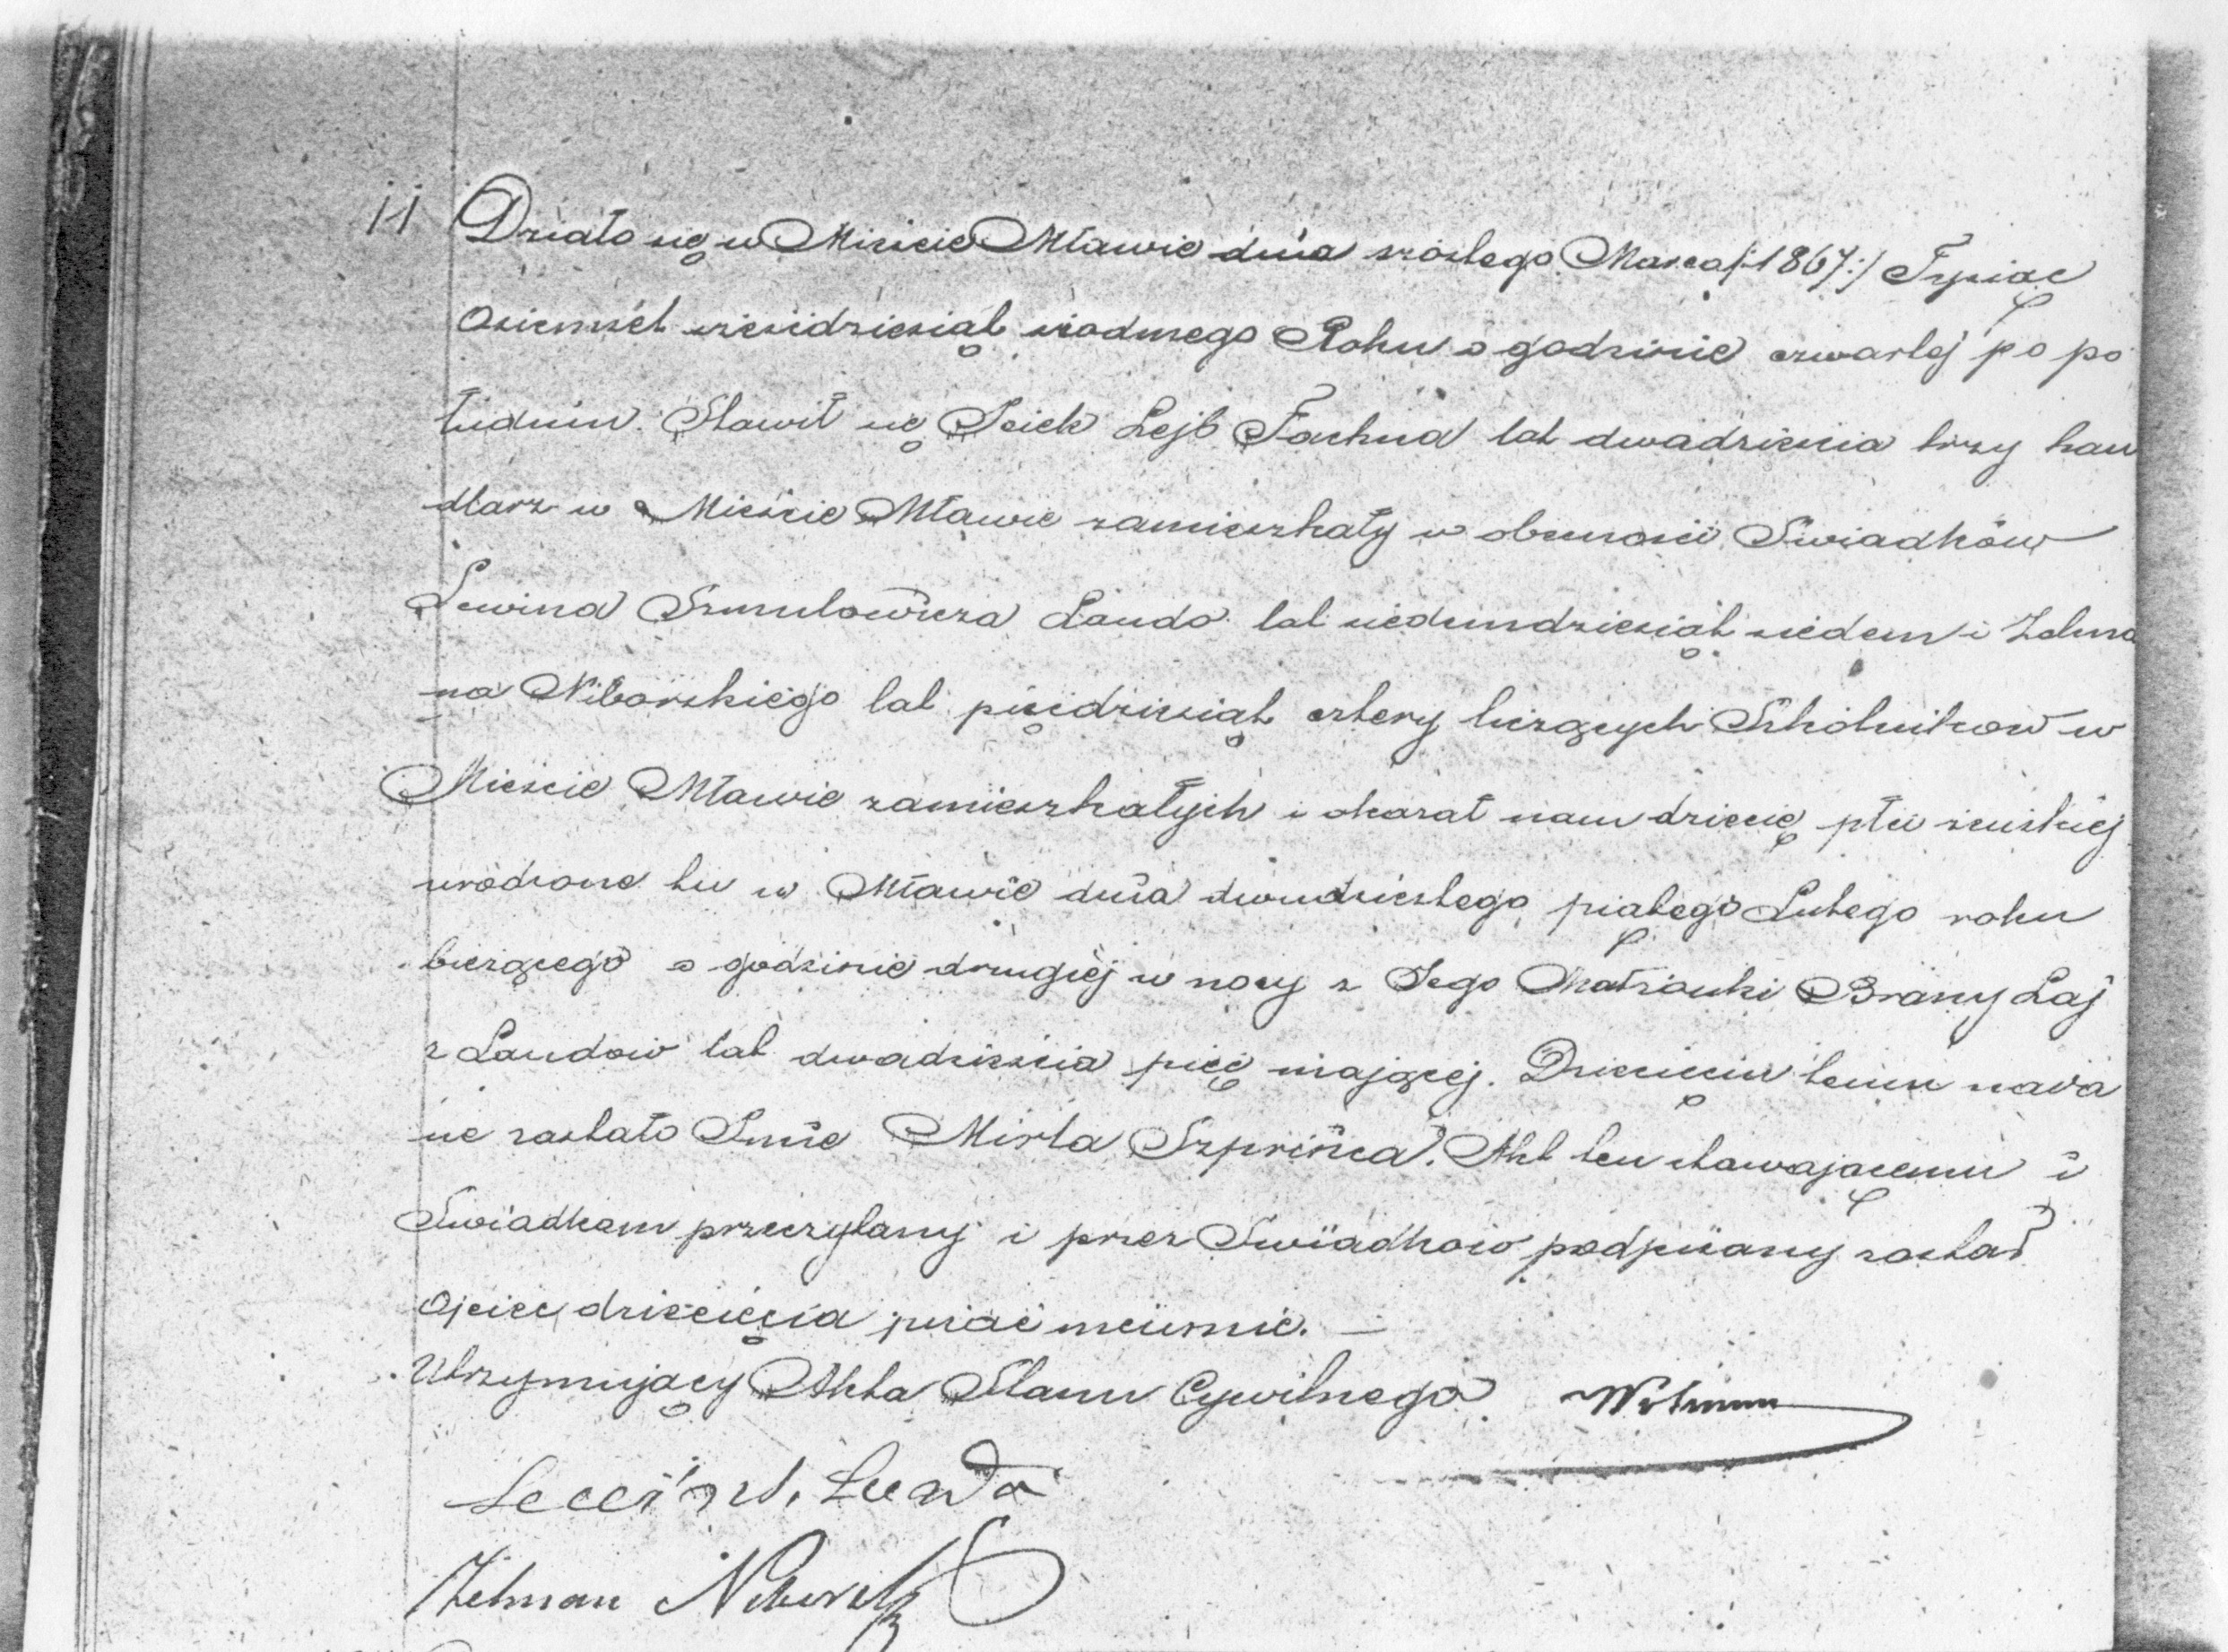 11 Działo się w Mieście Mławie dnia szóstego Marca /:1867:/ Tysiąc
Osiemset sześćdziesiąt siodmego Roku o godzinie czwartej po po
łudniu. Stawił się Icick Lejb Fachna lat dwadzieścia trzy han
dlarz w Mieście Mławie zamieszkały w obecności Swiadków
Lewina Szmulowicza Lando lat siedmdziesiąt siedem i Zelma
na Niborskiego lat pięćdziesiąt cztery liczących Szkolników w
Mieście Mławie zamieszkałych i okazał nam dziecię płci żeńskiej
urodzone tu w Mławie dnia dwudziestego piątego Lutego roku
bieżącego o godzinie drugiej w nocy z Jego Małżonki Brany Laj
z Landow lat dwadzieścia pięć mającej. Dziecięciu temu nada
ne zostało Imie Mirla Szprińca. Akt ten stawającemu i
Swiadkom przeczytany i przez Swiadkow podpisany został
Ojciec dziecięcia pisać nieumie. —
Utrzymujący Akta Stanu Cywilnego
Zelman Niborski